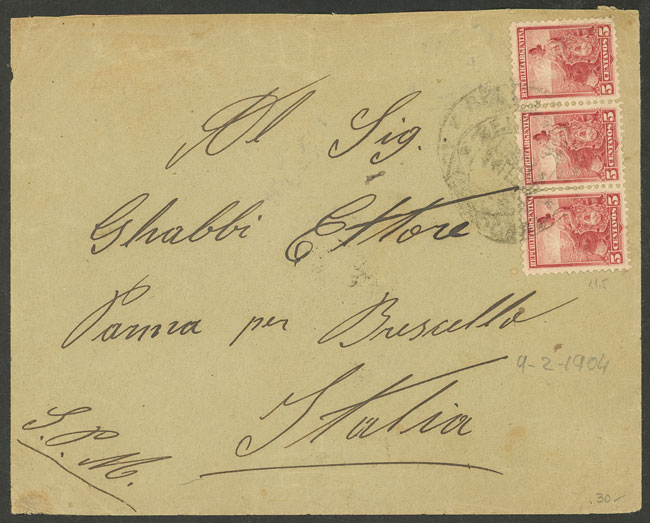 Al Sig.
Ghabbi Ettore
Parma per Brescello
Italia
S.P.M.
REPUBLICA ARGENTINA
5 CENTAVOS 5
REPUBLICA ARGENTINA
5 CENTAVOS 5
REPUBLICA ARGENTINA
5 CENTAVOS 5
11.5
9-2-1904
.30-